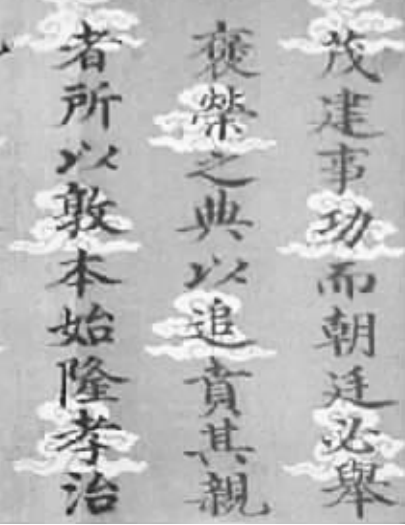 茂建事功而朝廷必舉
褒榮之典以追賁其親
者所以敦本始隆孝治